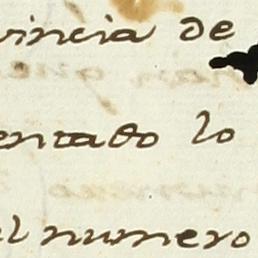 vincia de
entado lo
el numero